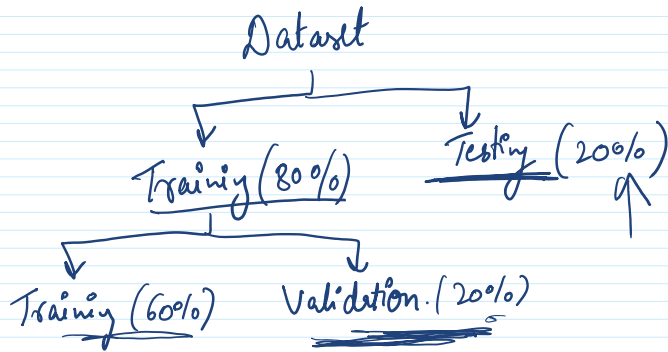 Dataset
Training (80%)
Testing (20%)
Training (60%)
Validation. (20%)